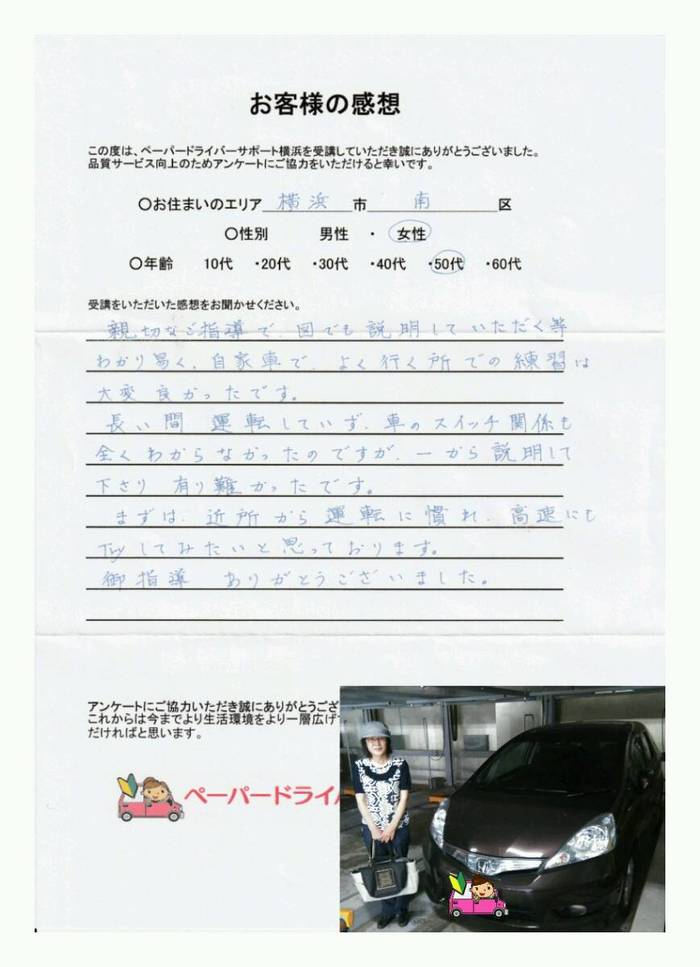 お客様の感想
この度は、ペーパードライバーサポート横浜を受講していただき誠にありがとうございました。
品質サービス向上のためアンケートにご協力をいただけると幸いです。
〇お住まいのエリア 横浜 市 南 区
〇性別 男性 ・ 女性
〇年齢 10代 ・20代 ・30代 ・40代 ・50代 ・60代
受講をいただいた感想をお聞かせください。
親切なご指導で、図でも説明していただく等
わかり易く、自家車で、よく行く所での練習は
大変良かったです。
長い間 運転していず、車のスイッチ関係も
全くわからなかったのですが、一から説明して
下さり 有り難かったです。
まずは、近所から運転に慣れ、高速にも
Tryしてみたいと思っております。
御指導 ありがとうございました。
アンケートにご協力いただき誠にありがとうござ
これからは今までより生活環境をより一層広げ
だければと思います。
ペーパードライバ